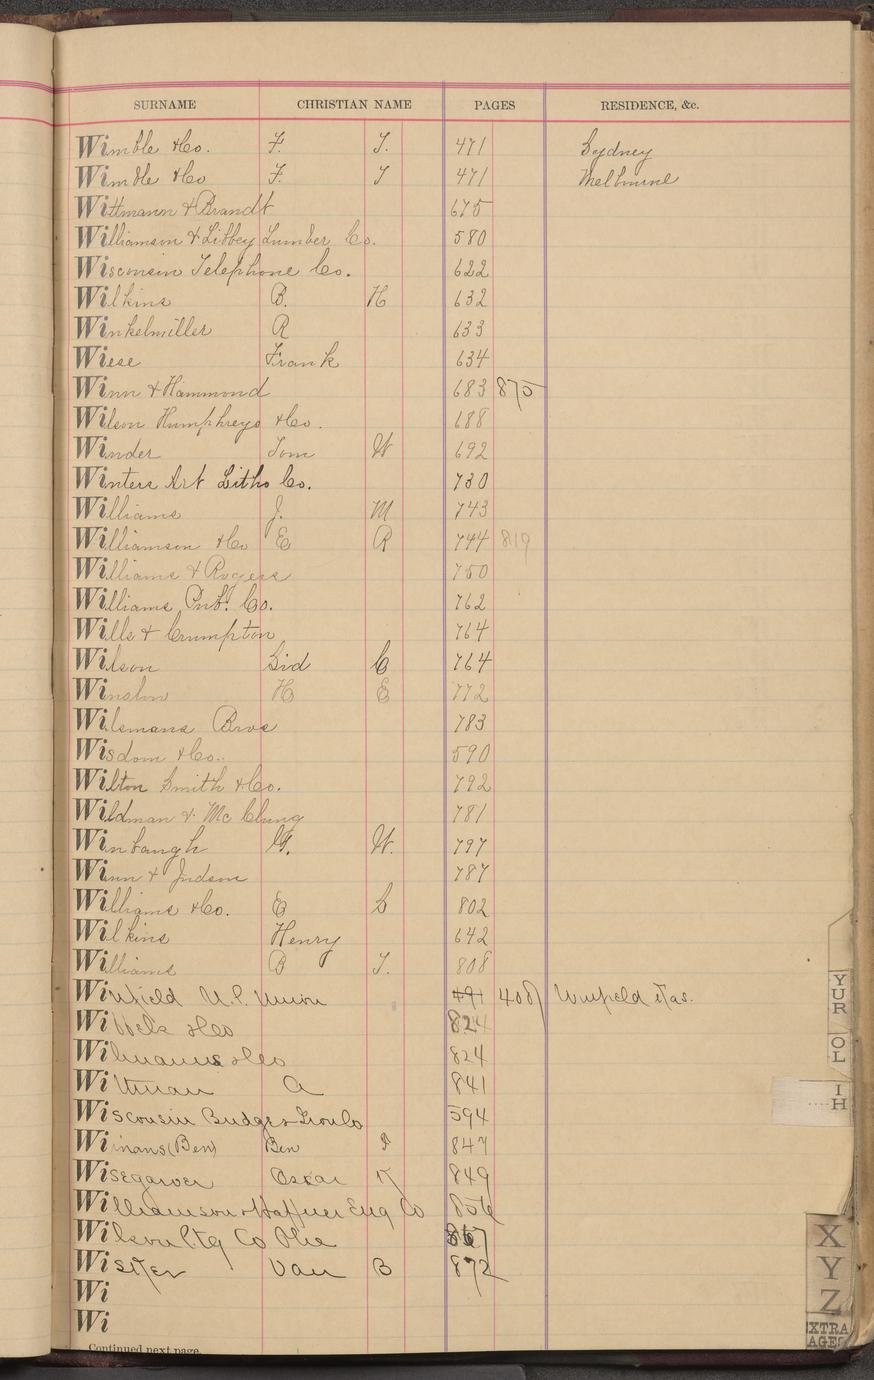 SURNAME CHRISTIAN NAME PAGES RESIDENCE, &c.
Wimble & Co. F. T. 471 Sydney
Wimble & Co F. T 471 Melbourne
Wittmann & Brandt 675
Williamson & Libbey Lumber Co. 580
Wisconsin Telephone Co. 622
Wilkins B. H 632
Winkelmiller R 633
Wiese Frank 634
Winn & Hammond 683 875
Wilson Humphreys & Co. 688
Winder Tom W 692
Winters Art Litho Co. 730
Williams J. M 743
Williamson & Co E R 744 819
Williams & Rogers 750
Williams Pub. Co. 762
Wills & Crumpton 764
Wilson Sid C 764
Winslow H E 772
Wilsmans Bros 783
Wisdom & Co. 590
Wilton Smith & Co. 792
Wildman & Mc Clung 781
Winbaugh G. W. 797
Winn & Judson 787
Williams & Co. E L 802
Wilkins Henry 642
Williams B T. 808
Winfield U.P. Union 491 408 Winfield Kas.
& Co 824
Wilmanns & Co 824
Wittman A 841
Wisconsin Bridge & Iron Co 594
Winans (Ben) Ben 847
Wisegarver Oscar K 849
Williamson & Haffner Eng Co 856
Wilson Ptg Co Phie 867
Wister Van B 872
Wi
Wi
Continued next page.
YUR
OL
IH
X
Y
Z
EXTRA
AGES